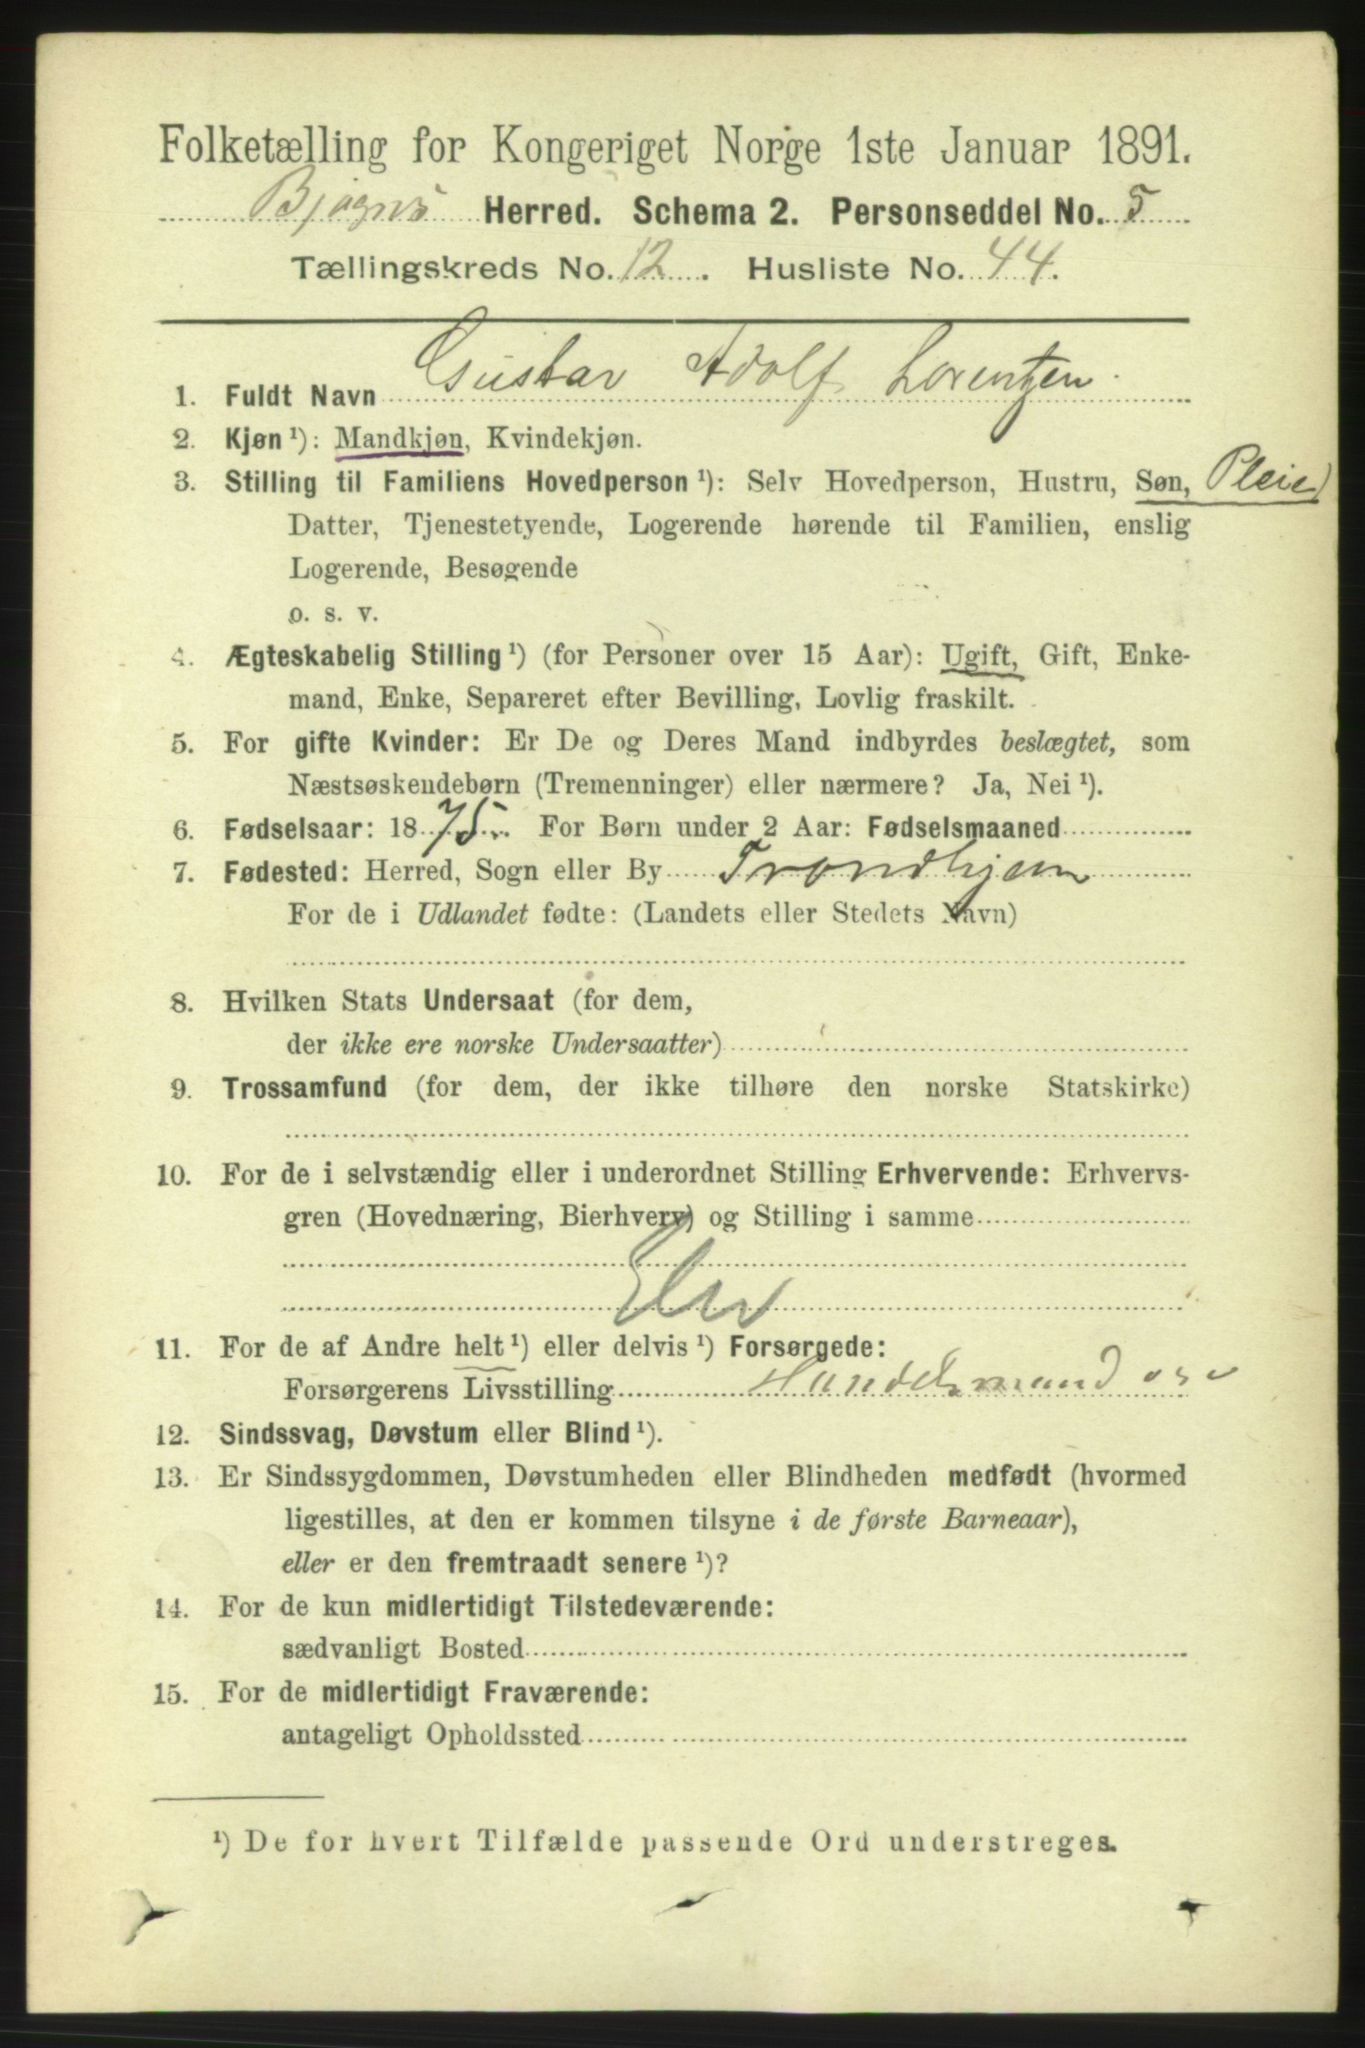 Folketælling for Kongeriget Norge 1ste Januar 1891.
Bjugns Herred. Schema 2. Personseddel No. 5
Tællingskreds No. 12. Husliste No. 44.
1. Fuldt Navn Gustav Adolf Lorentzen.
2. Kjøn ¹): Mandkjøn, Kvindekjøn.
3. Stilling til Familiens Hovedperson ¹): Selv Hovedperson, Hustru, Søn, Pleie
Datter, Tjenestetyende, Logerende hørende til Familien, enslig
Logerende, Besøgende
o. s. v.
4. Ægteskabelig Stilling ¹) (for Personer over 15 Aar): Ugift, Gift, Enke-
mand, Enke, Separeret efter Bevilling, Lovlig fraskilt.
5. For gifte Kvinder: Er De og Deres Mand indbyrdes beslægtet, som
Næstsøskendebørn (Tremenninger) eller nærmere? Ja, Nei ¹).
6. Fødselsaar: 1875. For Børn under 2 Aar: Fødselsmaaned
7. Fødested: Herred, Sogn eller By Trondhjem
For de i Udlandet fødte: (Landets eller Stedets Navn)
8. Hvilken Stats Undersaat (for dem,
der ikke ere norske Undersaatter)
9. Trossamfund (for dem, der ikke tilhøre den norske Statskirke)
10. For de i selvstændig eller i underordnet Stilling Erhvervende: Erhvervs-
gren (Hovednæring, Bierhverv) og Stilling i samme
Elev
11. For de af Andre helt ¹) eller delvis ¹) Forsørgede:
Forsørgerens Livsstilling Handelsmand osv
12. Sindssvag, Døvstum eller Blind ¹).
13. Er Sindssygdommen, Døvstumheden eller Blindheden medfødt (hvormed
ligestilles, at den er kommen tilsyne i de første Barneaar),
eller er den fremtraadt senere ¹)?
14. For de kun midlertidigt Tilstedeværende:
sædvanligt Bosted
15. For de midlertidigt Fraværende:
antageligt Opholdssted
¹) De for hvert Tilfælde passende Ord understreges.